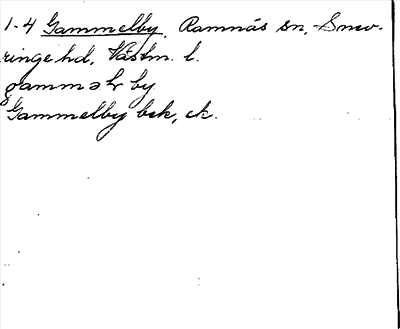 1-4 Gammelby, Ramnäs sn, Snev-
ringe hd, Västm. l.
gamməlr by
Gammelby bek, ek.